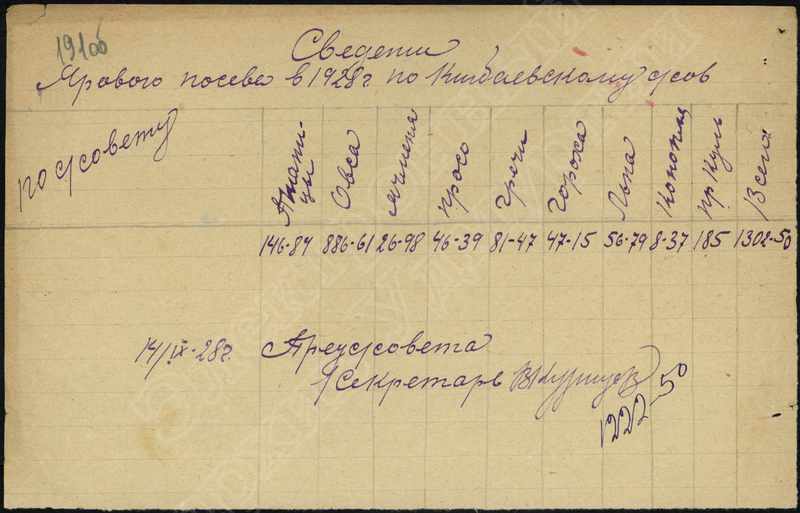 191об
Сведения
Ярового посева в 1928г по Кибаевскому с/сов
по с/совету
Пшени-
цы
Овса
Ячменя
просо
Гречи
Гороха
Льна
Конопля
пр Куль
Всего
146-84 886-61 26-98 46-39 81-47 47-15 56-79 8-37 185 1302-50
14/IX-28г. Предс/совета
Секретарь
1222-50